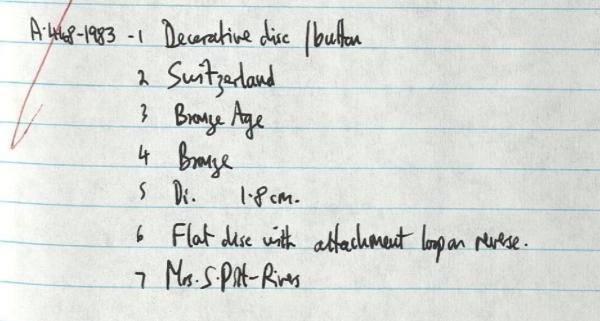 A·468-1983 -1 Decorative disc / button
2 Switzerland
3 Bronze Age
4 Bronze
5 Di. 1·8 cm.
6 Flat disc with attachment loop on reverse.
7 Mrs. S. Pitt-Rivers